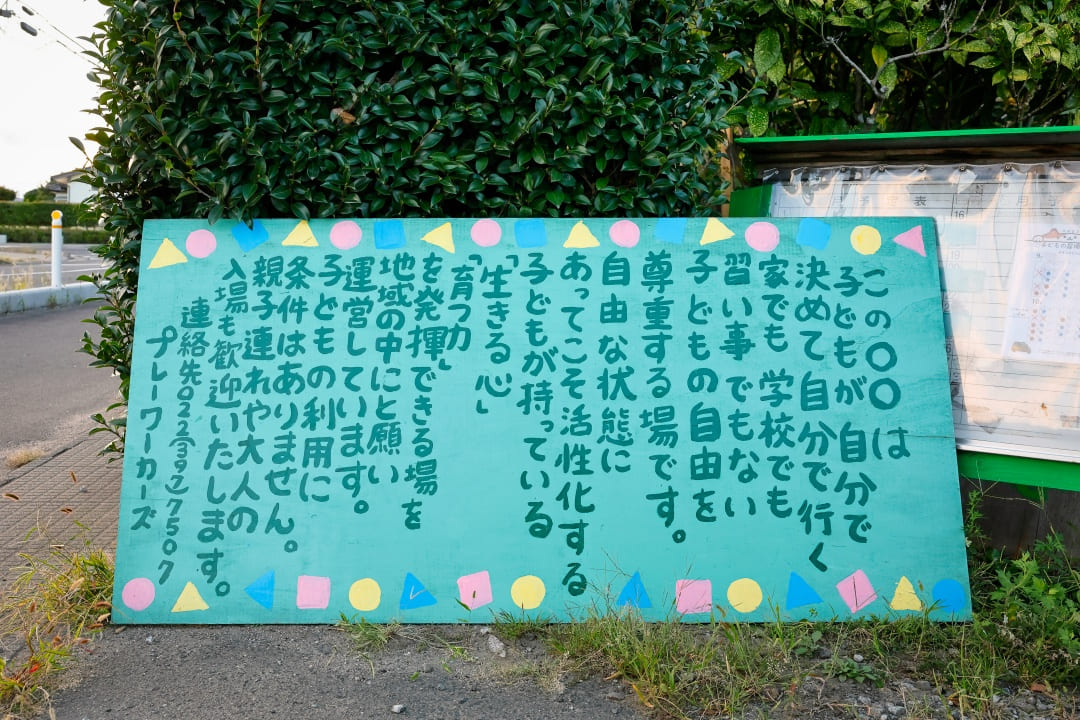 この〇〇は
子どもが自分で
決めて自分で行く
家でも学校でも
習い事でもない
子どもの自由を
尊重する場です。
自由な状態に
あってこそ活性化する
子どもが持っている
「生きる心」
「育つ力」
を発揮できる場を
地域の中にと願い
運営しています。
子どもの利用に
条件はありません。
親子連れや大人の
入場も歓迎いたします。
連絡先022-397-7507
プレーワーカーズ